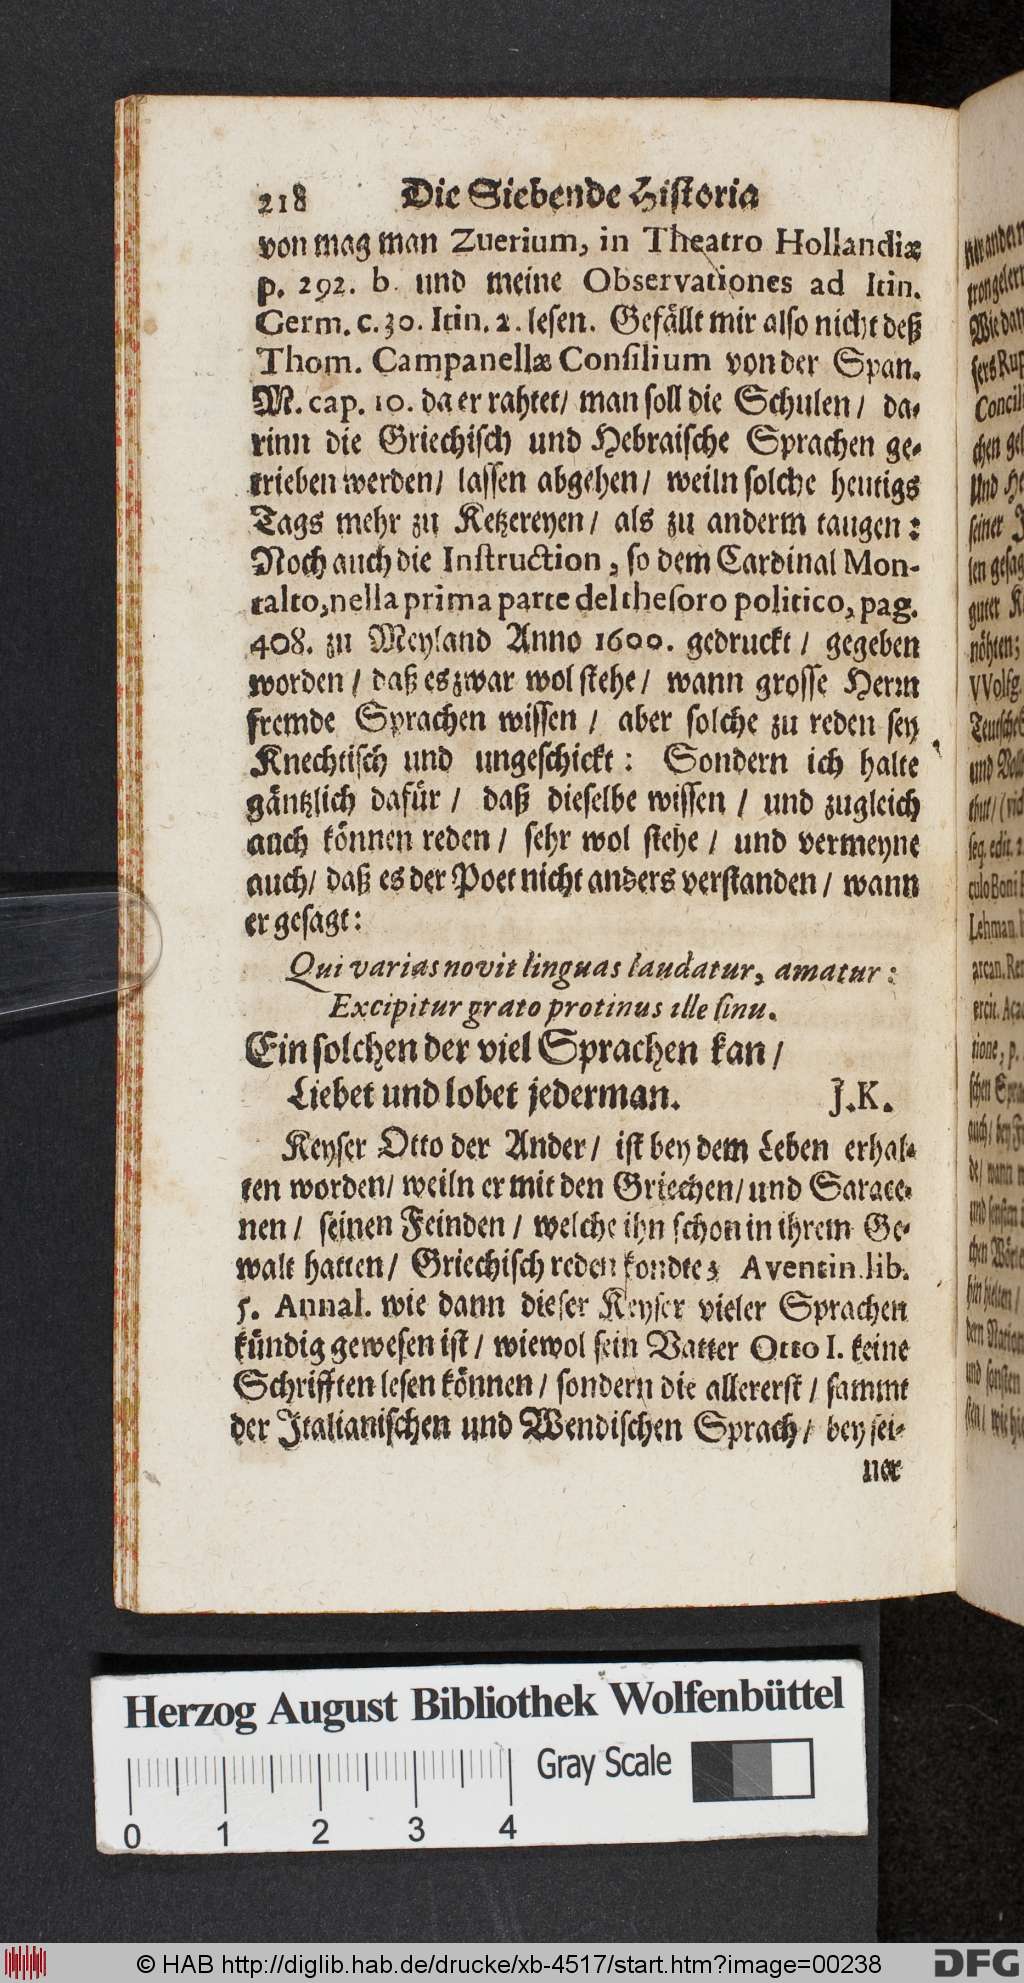 218 Die Siebende Historia
von mag man Zuerium, in Theatro Hollandiæ
p. 292. b. und meine Observationes ad Itin.
Germ. c. 30. Itin. 2. lesen. Gefällt mir also nicht deß
Thom. Campanellæ Consilium von der Span.
M. cap. 10. da er rahtet/ man soll die Schulen/ da-
rinn die Griechisch und Hebraische Sprachen ge-
trieben werden/ lassen abgehen/ weiln solche heutigs
Tags mehr zu Ketzereyen/ als zu anderm taugen:
Noch auch die Instruction, so dem Cardinal Mon-
talto, nella prima parte del thesoro politico, pag.
408. zu Meyland Anno 1600. gedruckt/ gegeben
worden/ daß es zwar wol stehe/ wann grosse Herrn
fremde Sprachen wissen/ aber solche zu reden sey
Knechtisch und ungeschickt: Sondern ich halte
gäntzlich dafür/ daß dieselbe wissen/ und zugleich
auch können reden/ sehr wol stehe/ und vermeyne
auch/ daß es der Poet nicht anders verstanden/ wann
er gesagt:
Qui varias novit linguas laudatur, amatur:
Excipitur grato protinus ille sinu.
Ein solchen der viel Sprachen kan/
Liebet und lobet jederman. J.K.
Keyser Otto der Ander/ ist bey dem Leben erhal-
ten worden/ weiln er mit den Griechen/ und Sarace-
nen/ seinen Feinden/ welche ihn schon in ihrem Ge-
walt hatten/ Griechisch reden kondte; Aventin. lib.
5. Annal. wie dann dieser Keyser vieler Sprachen
kündig gewesen ist/ wiewol sein Vatter Otto I. keine
Schrifften lesen können/ sondern die allererst/ sammt
der Italianischen und Wendischen Sprach/ bey sei-
ner
Herzog August Bibliothek Wolfenbüttel
Gray Scale
0 1 2 3 4
© HAB http://diglib.hab.de/drucke/xb-4517/start.htm?image=00238
DFG